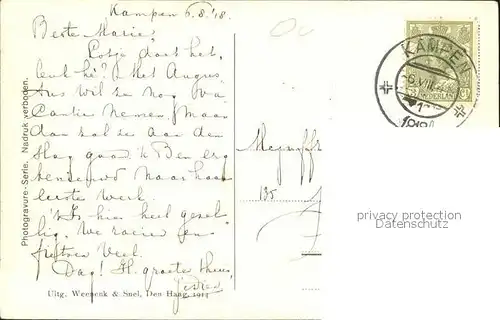 Kampen 6.8.'18.
Beste Marie,
Lotje doet het,
leuk hè? Met Augus-
tus wil ze nog va-
cantie nemen, maar
dan zal ze aan den
Haag gaan. 'k Ben erg
benieuwd naar haar
eerste werk.
't Is hier heel gesel-
lig. We roeien en
fietsen veel.
Dag! H. groeten thuis,
Mejuff
135
KAMPEN
6.VIII
NEDERLAND
1918
Photogravure-Serie. Nadruk verboden.
Uitg. Weenenk & Snel, Den Haag, 1914
privacy protection
Datenschutz